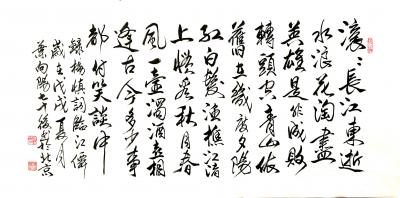 滚〻長江東逝
水浪花淘盡
英雄是非成敗
轉頭空青山依
舊在幾度夕陽
紅白髮漁樵江渚
上慣看秋月春
風一壺濁酒喜相
逢古今多少事
都付笑談中
録楊慎詞臨江僊
歲在戊戌夏月
葉向陽七十後書於北京